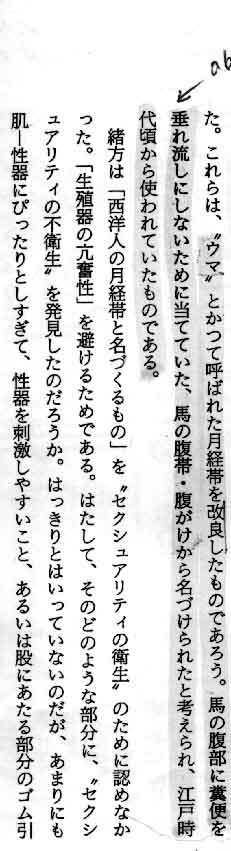 ab
た。これらは、〝ウマ〟とかつて呼ばれた月経帯を改良したものであろう。馬の腹部に糞便を
垂れ流しにしないために当てていた、馬の腹帯・腹がけから名づけられたと考えられ、江戸時
代頃から使われていたものである。
緒方は「西洋人の月経帯と名づくるもの」を〝セクシュアリティの衛生〟のために認めなか
った。「生殖器の亢奮性」を避けるためである。はたして、そのどのような部分に、〝セクシ
ュアリティの不衛生〟を発見したのだろうか。はっきりとはいっていないのだが、あまりにも
肌―性器にぴったりとしすぎて、性器を刺激しやすいこと、あるいは股にあたる部分のゴム引